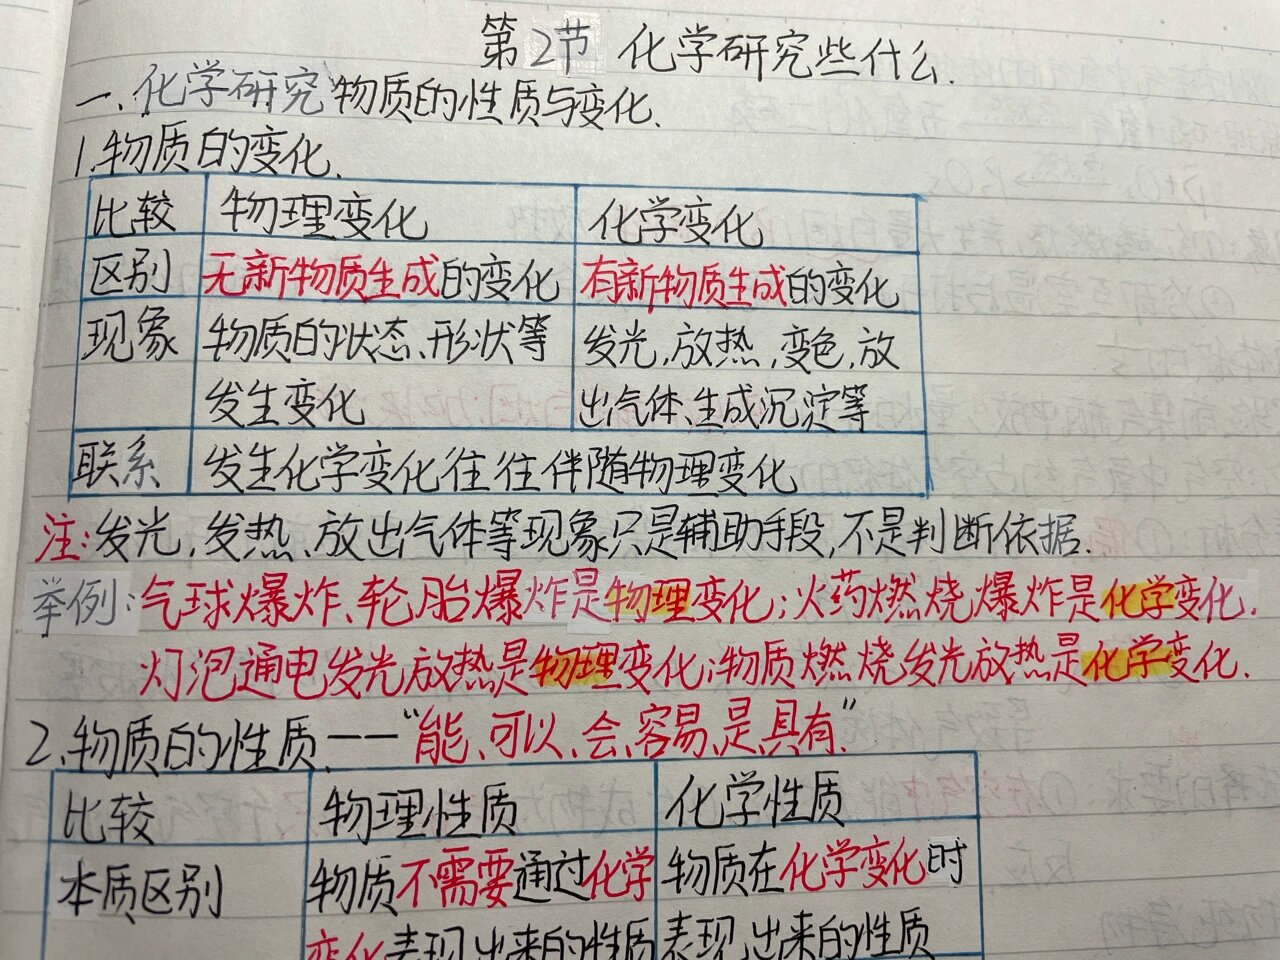 第2节 化学研究些什么.
一、化学研究物质的性质与变化.
1.物质的变化.
比较 物理变化 化学变化
区别 无新物质生成的变化 有新物质生成的变化
现象 物质的状态、形状等 发光,放热,变色,放
发生变化 出气体、生成沉淀等
联系 发生化学变化往往伴随物理变化
注:发光,发热、放出气体等现象只是辅助手段,不是判断依据.
举例:气球爆炸、轮胎爆炸是物理变化;火药燃烧爆炸是化学变化.
灯泡通电发光放热是物理变化;物质燃烧发光放热是化学变化.
2.物质的性质.——“能、可以、会、容易、是、具有”
比较 物理性质 化学性质
本质区别 物质不需要通过化学 物质在化学变化时
变化表现出来的性质 表现出来的性质